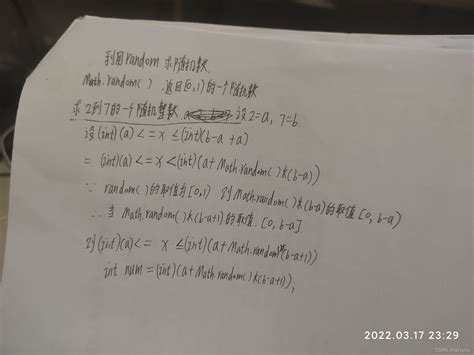 利用random 求随机数
Math.random() 返回[0,1)的一个随机数
求2到7的一个随机整数 设2=a, 7=b.
设(int)(a)<=x≤(int)(b-a+a)
=(int)(a)<=x<(int)(a+Math.random()*(b-a))
∵ random()的取值为[0,1) 则Math.random()*(b-a)的取值[0, b-a)
∴当 Math.random()*(b-a+1)的取值.[0, b-a]
则(int)(a)<= x ≤(int)(a+Math.random*(b-a+1))
int num=(int)(a+Math.random()*(b-a+1));
2022.03.17 23:29